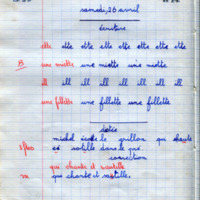 samedi, 26 avril
écriture
ette ette ette ette ette ette ette ette
B une miette une miette une miette
ill ill ill ill ill ill ill ill
une fillette une fillette une fillette
dictée
michel écoute le grillon qui chante
et sautille dans le pré.
correction
qui chante et sautille
qui chante et sautille.